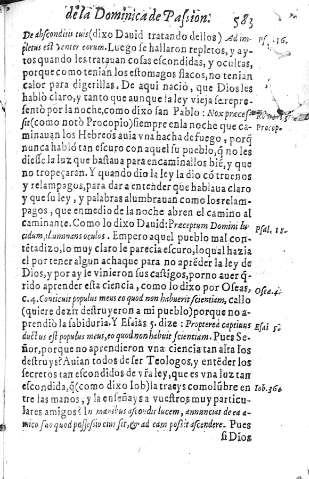 de la Dominica de Passion. 583
De absconditis tuis (dixo Dauid tratando dellos) Ad im- Ps. 16.
pletus est venter eorum. Luego se hallaron repletos, y ay-
tos quando les tratauan cosas escondidas, y ocultas,
porque como tenian los estomagos flacos, no tenian
calor para digerillas. De aqui naciò, que Dios les
hablò claro, y tanto que aunque la ley vieja se repre-
sentò por la noche, como dixo san Pablo: Nox præces-
sit (como notò Procopio) siempre en la noche que ca- Procop.
minauan los Hebreos auia vna hacha de fuego, porq̃
nunca hablò tan escuro con aquel su pueblo, q̃ no les
diesse la luz que bastaua para encaminallos biẽ, y que
no tropeçaran. Y quando dio la ley la diò cõ truenos
y relampagos, para dar a entender que hablaua claro
y que su ley, y palabras alumbrauan como los relam-
pagos, que en medio de la noche abren el camino al
caminante. Como lo dixo Dauid: Præceptum Domini lu- Psal. 18.
cidum, illuminans oculos. Empero aquel pueblo mal con-
tẽtadizo, lo muy claro le parecia escuro, lo qual hazia
el por tener algun achaque para no aprẽder la ley de
Dios, y por ay le vinieron sus castigos, por no auer q̃-
rido aprender esta ciencia, como lo dixo por Oseas, Osea 4.
c. 4. Conticuit populus meus eo quod non habuerit scientiam, callò
(quiere dezir destruyeron a mi pueblo) porque no a-
prendiò la sabiduria. Y Esaias 5. dize: Propterea captiuus Esai. 5.
ductus est populus meus, eo quod non habuit scientiam. Pues Se-
ñor, porque no aprendieron vna ciencia tan alta los
destruys? Auian todos de ser Teologos, y entẽder los
secretos tan escondidos de vr̃a ley, que es vna luz tan
escondida, q̃ (como dixo Iob) la traeys como lũbre en Iob. 36.
tre las manos, y la enseñays a vuestros muy particu-
lares amigos? In manibus abscondit lucem, annuncias de ea a-
mico suo quod possessio eius sit, & ad eam possit ascendere. Pues
si Dios